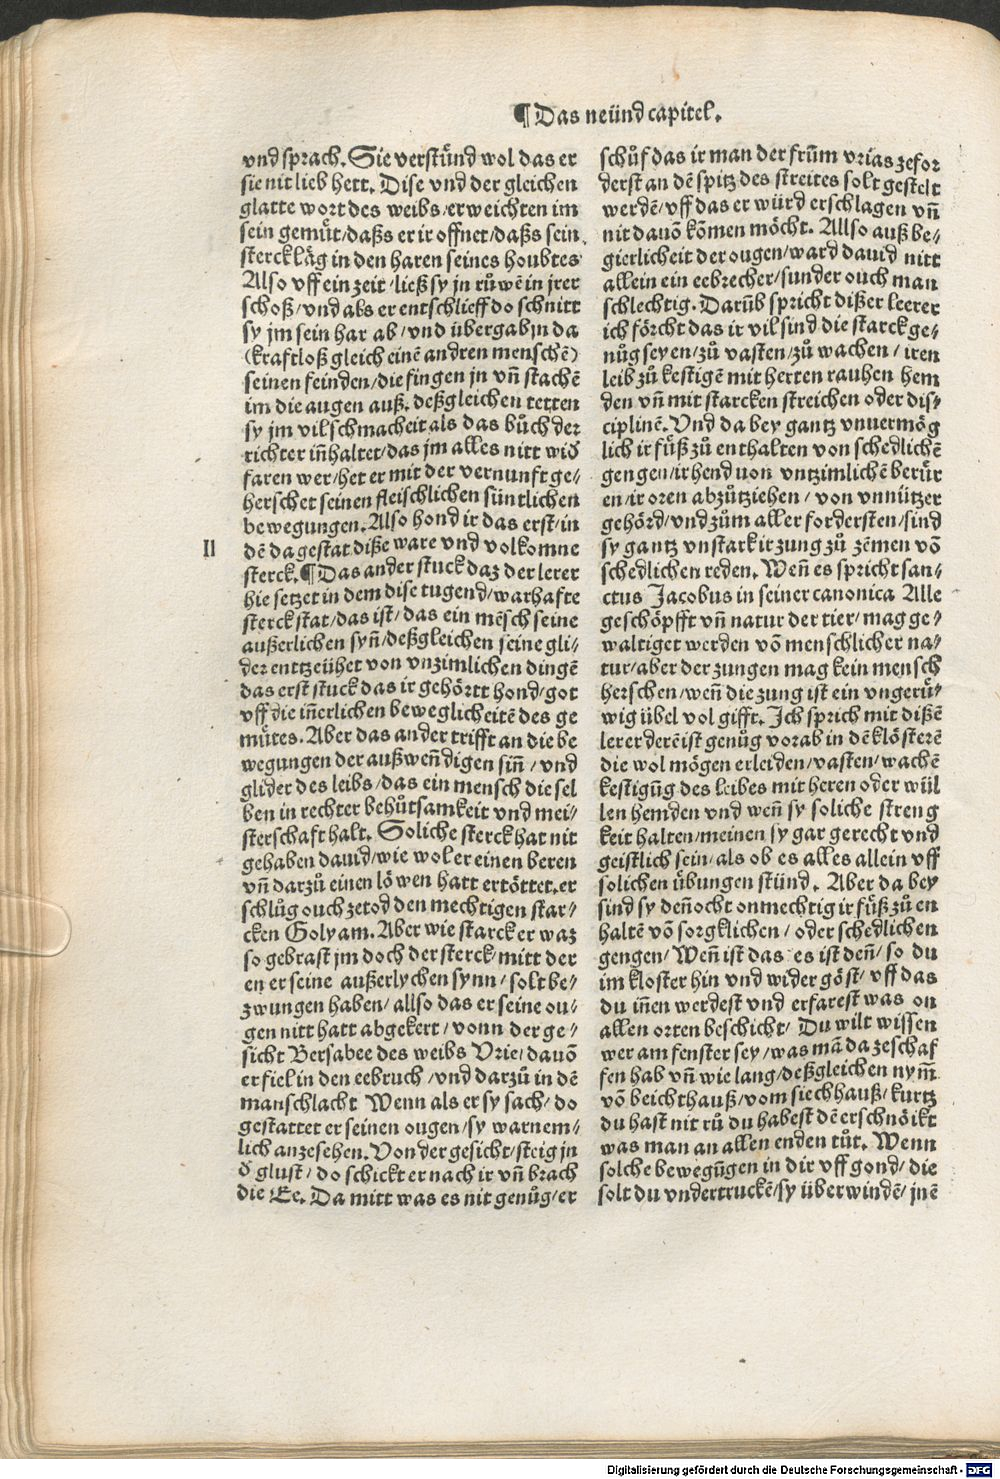 ¶Das neünd capitel.
vnd sprach. Sie verstůnd wol das er
sie nit lieb hett. Dise vnd der gleichen
glatte wort des weibs/erweichten im
sein gemüt/daßs er ir offnet/daßs sein
sterck läg in den haren seines houbtes
Also vff ein zeit/ließ sy jn růwē in jrer
schoß/vnd als er entschlieff do schnitt
sy jm sein har ab/vnd übergab jn da
(kraftloß gleich einē andren menschē)
seinen feinden/die fingen jn vn̄ stachē
im die augen auß. deßgleichen tetten
sy jm vil schmacheit als das bůch der
richter in̄haltet/das jm alles nitt wid̄
faren wer/het er mit der vernunft ge/
herschet seinen fleischlichen süntlichen
bewegungen. Also hond ir das erst/in
II
dē da gestat diße ware vnd volkomne
sterck. ¶Das ander stuck daz der lerer
hie setzet in dem dise tugend/warhafte
sterck stat/das ist/das ein mēsch seine
außerlichen syn̄/deßgleichen seine gli/
der enttzeühet von vnzimlichen dingē
das erst stuck das ir gehörtt hond/got
vff die in̄erlichen beweglicheitē des ge
mütes. Aber das ander trifft an die be
wegungen der außwen̄digen sin̄/vnd
glider des leibs/das ein mensch die sel
ben in rechter behůtsamkeit vnd mei/
sterschaft halt. Soliche sterck hat nit
gehaben dauid/wie wol er einen beren
vn̄ darzů einen löwen hatt ertöttet. er
schlůg ouch zetod den mechtigen star/
cken Golyam. Aber wie starck er waz
so gebrast jm doch der sterck/mitt der
en er seine außerlychen synn/solt be/
zwungen haben/allso das er seine ou/
gen nitt hatt abgekert/vonn der ge/
sicht Bersabee des weibs Vrie/dauō
er fiel in den eebruch/vnd darzů in dē
manschlacht Wenn als er sy sach/do
gestattet er seinen ougen/sy warnem/
lich anzesehen. Von der gesicht/steig jn
d̄ glust/do schickt er nach ir vn̄ brach
die Ee. Da mitt was es nit genůg/er
schůf das ir man der frūm vrias zefor
derst an dē spitz des streites solt gestelt
werdē/vff das er würd erschlagen vn̄
nit dauō kōmen möcht. Allso auß be/
gierlicheit der ougen/ward dauid nitt
allein ein eebrecher/sunder ouch man
schlechtig. Darūb spricht dißer leerer
ich förcht das ir vil sind die starck ge/
nůg seyen/zů vasten/zů wachen/iren
leib zů kestigē mit herten rauhen hem
den vn̄ mit starcken streichen oder dis/
ciplinē. Vnd da bey gantz vnuermög
lich ir füß zů enthalten von schedlichē
gengen/ir hend uon vntzimlichē berür
en/ir oren abzůtziehen/von vnnützer
gehörd/vnd zům aller fordersten/sind
sy gantz vnstark ir zung zů zēmen vō
schedlichen reden. Wen̄ es spricht san/
ctus Jacobus in seiner canonica Alle
geschöpfft vn̄ natur der tier/mag ge/
waltiget werden vō menschlicher na/
tur/aber der zungen mag kein mensch
herschen/wen̄ die zung ist ein vngerü/
wig übel vol gifft. Ich sprich mit dißē
lerer derē ist genůg vorab in dē klösterē
die wol mögen erleiden/vasten/wachē
kestigūg des leibes mit heren oder wül
len hemden vnd wen̄ sy soliche streng
keit halten/meinen sy gar gerecht vnd
geistlich sein/als ob es alles allein vff
solichen übungen stünd. Aber da bey
sind sy den̄ocht onmechtig ir füß zů en
haltē vō sorgklichen/oder schedlichen
gengen/Wen̄ ist das es ist den̄/so du
im kloster hin vnd wider göst/vff das
du in̄en werdest vnd erfarest was on
allen orten beschicht/Du wilt wissen
wer am fenster sey/was mā da zeschaf
fen hab vn̄ wie lang/deßgleichen nym̄
vō beichthauß/vom siechhauß/kurtz
du hast nit rů du habest dē erschnöikt
was man an allen enden tůt. Wenn
solche bewegūgen in dir vff gond/die
solt du vndertruckē/sy überwindē/jnē
Digitalisierung gefördert durch die Deutsche Forschungsgemeinschaft - DFG